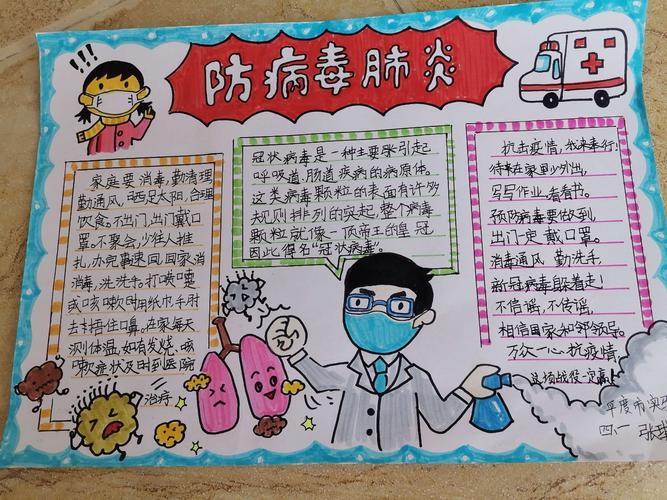 防病毒肺炎
!!!
家庭要消毒,勤清理
勤通风,晒足太阳,合理
饮食。不出门,出门戴口
罩。不聚会,少往人推
扎,办完事速回,回家消
消毒,洗洗手。打喷嚏
或咳嗽时用纸巾手肘
去捂住口鼻。在家每天
测体温,如有发烧、咳
嗽症状及时到医院
治疗
冠状病毒是一种主要引起
呼吸道、肠道疾病的病原体。
这类病毒颗粒的表面有许多
规则排列的突起,整个病毒
颗粒就像一顶帝王的皇冠
因此得名“冠状病毒”。
抗击疫情,我来奉行!
待在家里少外出,
写写作业,看看书。
预防病毒要做到,
出门一定戴口罩。
消毒通风勤洗手,
新冠病毒躲着走!
不信谣,不传谣,
相信国家和领导。
万众一心,抗疫情,
这场战役一定赢!
平度市实
四.一 张